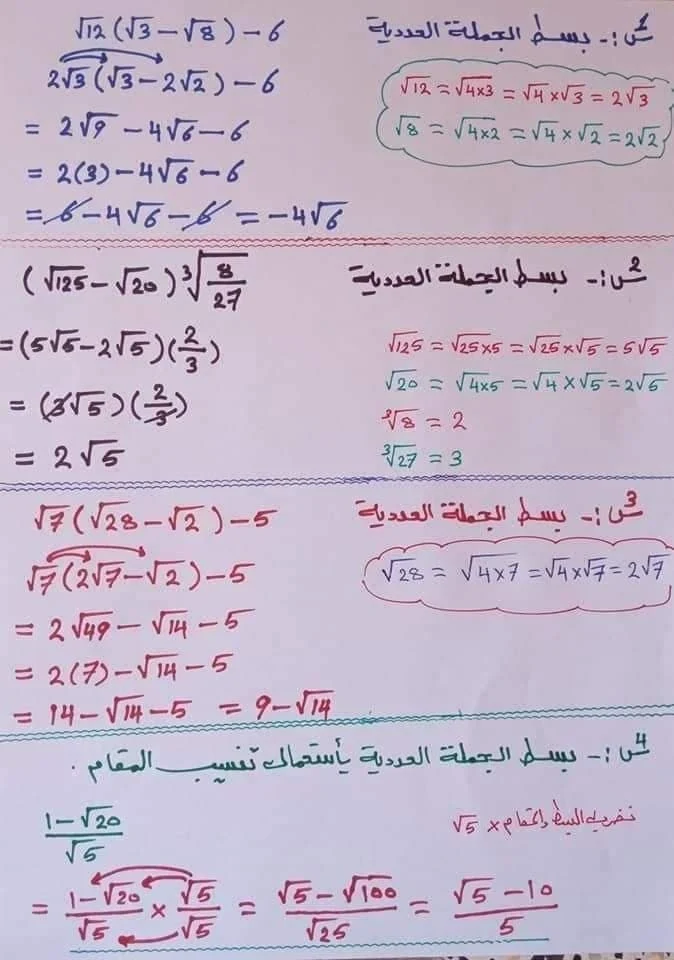 س1:- بسط الجملة العددية
√12 (√3 - √8) - 6
2√3 (√3 - 2√2) - 6
= 2√9 - 4√6 - 6
= 2(3) - 4√6 - 6
= 6 - 4√6 - 6 = -4√6
√12 = √4×3 = √4 × √3 = 2√3
√8 = √4×2 = √4 × √2 = 2√2
س2:- بسط الجملة العددية
(√125 - √20) ∛(8/27)
= (5√5 - 2√5) (2/3)
= (3√5) (2/3)
= 2√5
√125 = √25×5 = √25 × √5 = 5√5
√20 = √4×5 = √4 × √5 = 2√5
∛8 = 2
∛27 = 3
س3:- بسط الجملة العددية
√7 (√28 - √2) - 5
√7 (2√7 - √2) - 5
= 2√49 - √14 - 5
= 2(7) - √14 - 5
= 14 - √14 - 5 = 9 - √14
√28 = √4×7 = √4 × √7 = 2√7
س4:- بسط الجملة العددية بأستعمال تنسيب المقام .
(1 - √20)/√5
نضرب البسط والمقام × √5
= (1 - √20)/√5 × √5/√5 = (√5 - √100)/√25 = (√5 - 10)/5